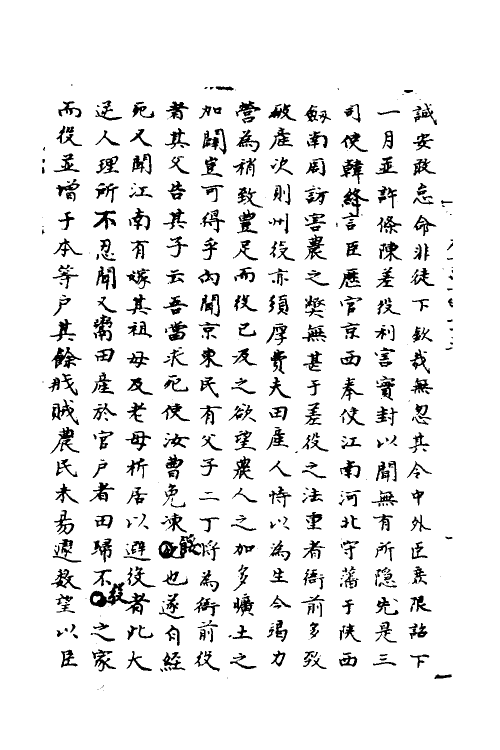 誠安敢忘命非徒下欽哉無忽其令中外臣庶限詔下
一月並許條陳差役利害實封以聞無有所隐先是三
司使韓絳言臣歷官京西奉使江南河北守藩于陝西
劔南周訪害農之獘無甚于差役之法重者衙前多致
破産次則州役亦須厚費夫田産人恃以為生今竭力
營為稍致豊足而役已及之欲望農人之加多曠土之
加闢豈可得乎向聞京東民有父子二丁将為衙前役
者其父告其子云吾當求死使汝曹免凍餒也遂自經
死又聞江南有嫁其祖母及老母析居以避役者此大
逆人理所不忍聞又鬻田産於官户者田歸不役之家
而役並增于本等户其餘戕賊農民未易遽数望以臣